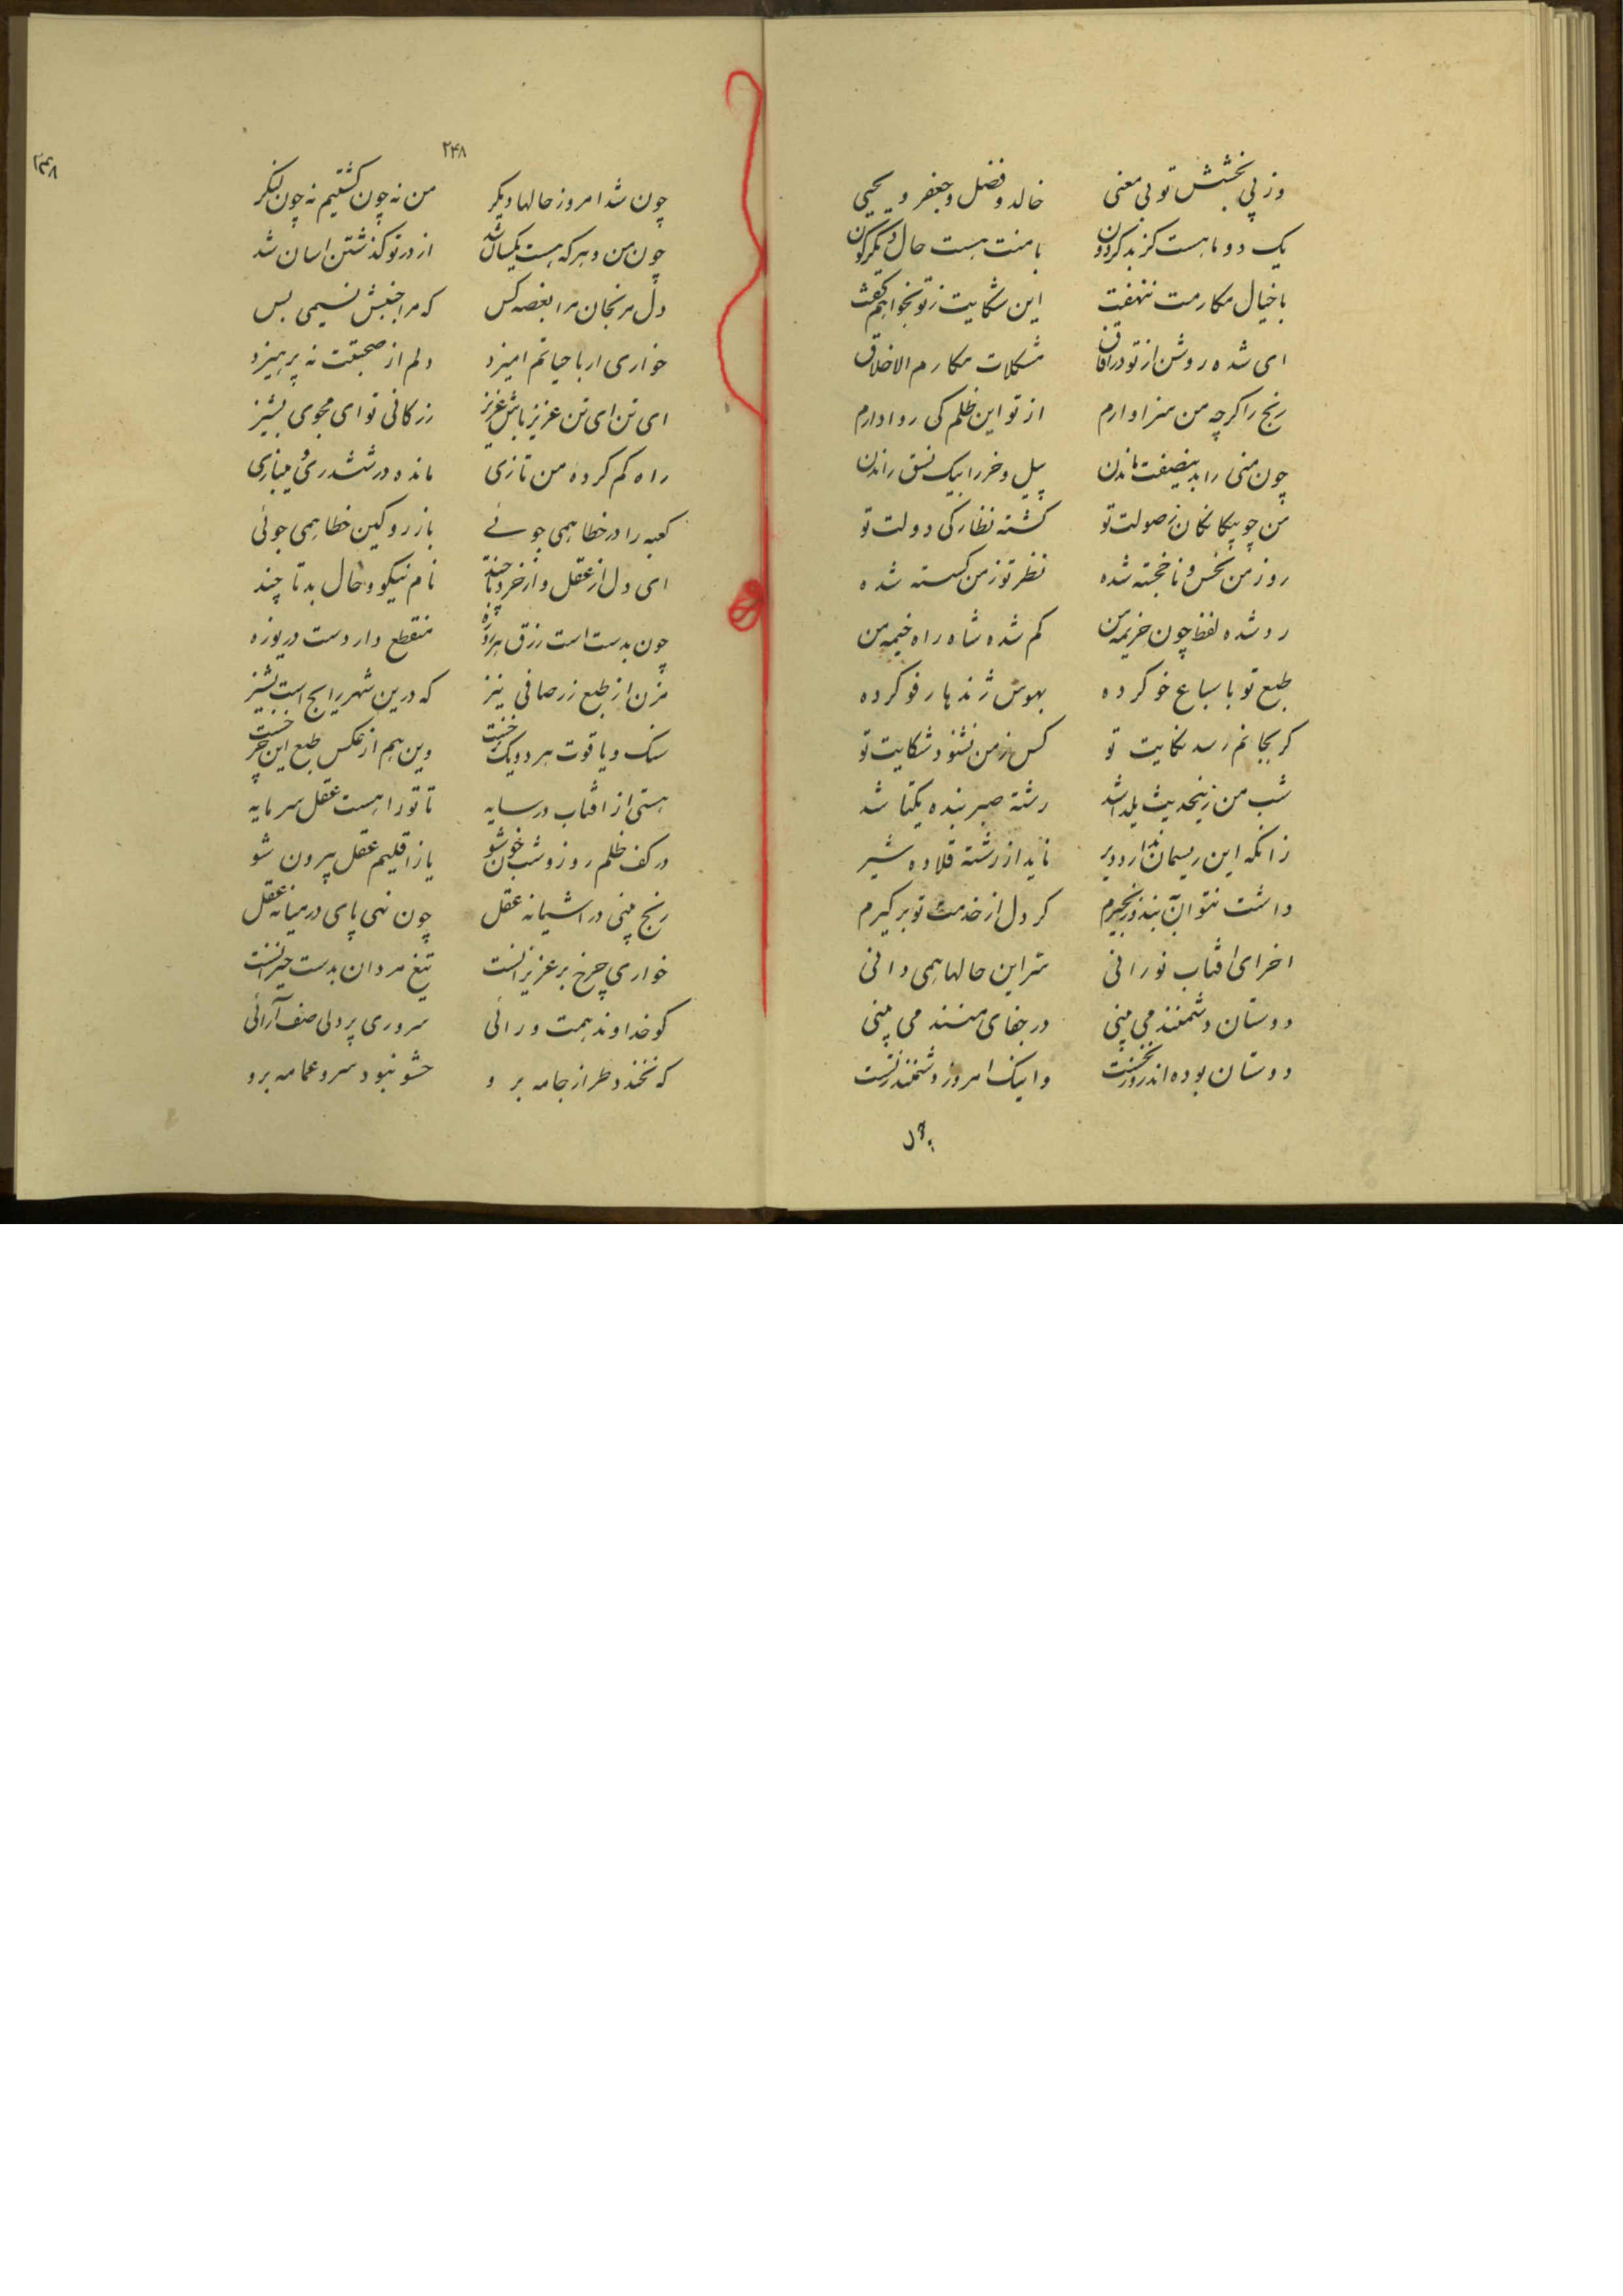 وز پی بخشش تو بی معنی خالد و فضل و جعفر و یحیی
یک دو ماهست کز بد کردون با منت هست حال دیکرکون
با خیال مکارمت ننهفت این شکایت ز تو نخواهم کفت
ای شده روشن از تو در آفاق مشکلات مکارم الاخلاق
رنج را کرچه من سزاوارم از تو این ظلم کی روا دارم
چون منی را بدین صفت ماندن پیل و خر را بیک نسق راندن
من چو بیکانکان ز صولت تو کشته نظارکی دولت تو
روز من نحس و ناخجسته شده نظر تو ز من کسسته شده
رو شده لفظ چون خزیمه من کم شده شاه راه خیمه من
طبع تو با سباع خو کرده بهوس ژندها رفو کرده
کر بجانم رسد نکایت تو کس ز من نشنود شکایت تو
شب من زینحدیث یلدا شد رشته صبر بنده یکتا شد
زانکه این ریسمان ندارد دیر ناید از رشته قلاده شیر
داشت نتوان ببند و زنجیرم کر دل از خدمت تو برکیرم
اخر ای افتاب نورانی سر این حالها همی دانی
دوستان دشمنند می بینی در جفای منند می بینی
دوستان بوده اند روز نخست واینک امروز دشمنند درست
۲۴۸
۲۴۸
چون شد امروز حالها دیکر من نه چون کشتیم نه چون لنکر
چون من و هرکه هست یکسان شد از در تو کذشتن اسان شد
دل مرنجان مرا بغصه کس که مرا جنبش نسیمی بس
خواری ار با حیاتم امیزد دلم از صحبتت نه پرهیزد
ای تن ای تن عزیز باش عزیز زر کانی تو ای مجوی پشیز
راه کم کرده من تازی مانده در ششدری و میبازی
کعبه را در خطا همی جوئے باز رو کین خطا همی جوئی
ای دل از عقل و از خرد تا چند نام نیکو و حال بد تا چند
چون بدست است رزق هر روزه منقطع دار دست دریوزه
مزن از طبع زر صافی نیز که درین شهر رایج است پشیز
سنک و یاقوت هر دو یک نرخست وین هم از عکس طبع این چرخست
تا تو را هست عقل سرمایه هستی از افتاب در سایه
در کف ظلم روز و شب خوش شو یا ز اقلیم عقل بیرون شو
رنج بینی در اشیانه عقل چون نهی پای در میانه عقل
خواری چرخ بر عزیزانست تیغ مردان بدست حیزانست
کو خداوند همت و رائی سروری پر دلی صف آرائی
که نخندد طراز جامه برو حشو نبود سر و عمامه برو